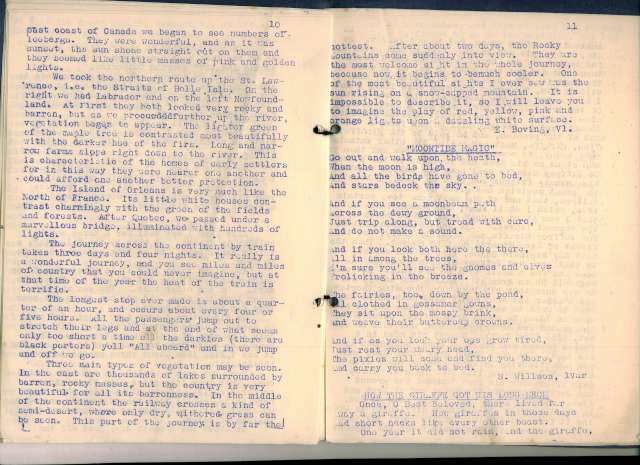 10
east coast of Canada we began to see numbers of
icebergs. They were wonderful, and as it was
sunset, the sun shone straight out on them and
they seemed like little masses of pink and golden
lights.
We took the northern route up the St. Law-
rence, i.e. the Straits of Belle Isle. On the
right we had Labrador and on the left Newfound-
land. At first they both looked very rocky and
barren, but as we proceeded further up the river,
vegetation began to appear. The lighter green
of the maple tree is contrasted most beautifully
with the darker hue of the firs. Long and nar-
row farms slope right down to the river. This
is characteristic of the homes of early settlers
for in this way they were nearer one another and
could afford one another better protection.
The Island of Orleans is very much like the
North of France. Its little white houses con-
trast charmingly with the green of the fields
and forests. After Quebec, we passed under a
marvellous bridge, illuminated with hundreds of
lights.
The journey across the continent by train
takes three days and four nights. It really is
a wonderful journey, and you see miles and miles
of country that you could never imagine, but at
that time of the year the heat of the train is
terrific.
The longest stop ever made is about a quar-
ter of an hour, and occurs about every four or
five hours. All the passengers jump out to
stretch their legs and at the end of what seems
only too short a time all the darkies (there are
black porters) yell "All aboard" and in we jump
and off we go.
Three main types of vegetation may be seen.
In the east are thousands of lakes surrounded by
barren, rocky masses, but the country is very
beautiful for all its barrenness. In the middle
of the continent the railway crosses a kind of
semi-desert, where only dry, withered grass can
be seen. This part of the journey is by far the
11
hottest. After about two days, the Rocky
Mountains come suddenly into view. They are
the most welcome sight in the whole journey,
because now it begins to be much cooler. One
of the most beautiful sights I ever saw was the
sun rising on a snow-capped mountain. It is
impossible to describe it, so I will leave you
to imagine the play of red, yellow, pink and
orange lights upon a dazzling white surface.
E. Boving, VI.
"MOONTIDE MAGIC"
Go out and walk upon the heath,
When the moon is high,
And all the birds have gone to bed,
And stars bedeck the sky.
And if you see a moonbeam path
Across the dewy ground,
Just trip along, but tread with care,
And do not make a sound.
And if you look both here the there,
All in among the trees,
I'm sure you'll see the gnomes and elves
Frolicking in the breeze.
The fairies, too, down by the pond,
All clothed in gossamer gowns,
They sit upon the mossy brink,
And weave their buttercup crowns.
And if as you look your eyes grow tired,
Just rest your weary head,
The pixies will soon find you there,
And carry you back to bed.
N. Willson, IVar
HOW THE GIRAFFE GOT HIS LONG NECK
Once, O Best Beloved, there lived far
away a giraffe. Now giraffes in those days
had short necks like every other beast.
One year it did not rain, and the giraffe,